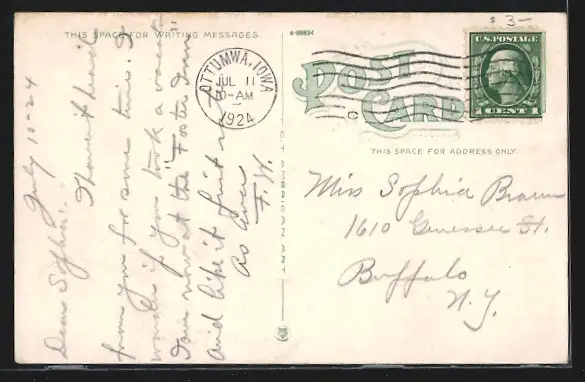 $ 3-
THIS SPACE FOR WRITING MESSAGES
A-86634
POST CARD
U.S. POSTAGE
1 CENT 1
OTTUMWA, IOWA
JUL 11
10-AM
1924
THIS SPACE FOR ADDRESS ONLY
July 10-24
Dear Sophia:
I haven't heard
from you for some time. I
wonder if you took a vacation
I am now at the "Foster Iowa"
and like it first r
As ever
F. W.
Miss Sophia Braun
1610 Genessee St.
Buffalo
N.Y.
AMERICAN ART